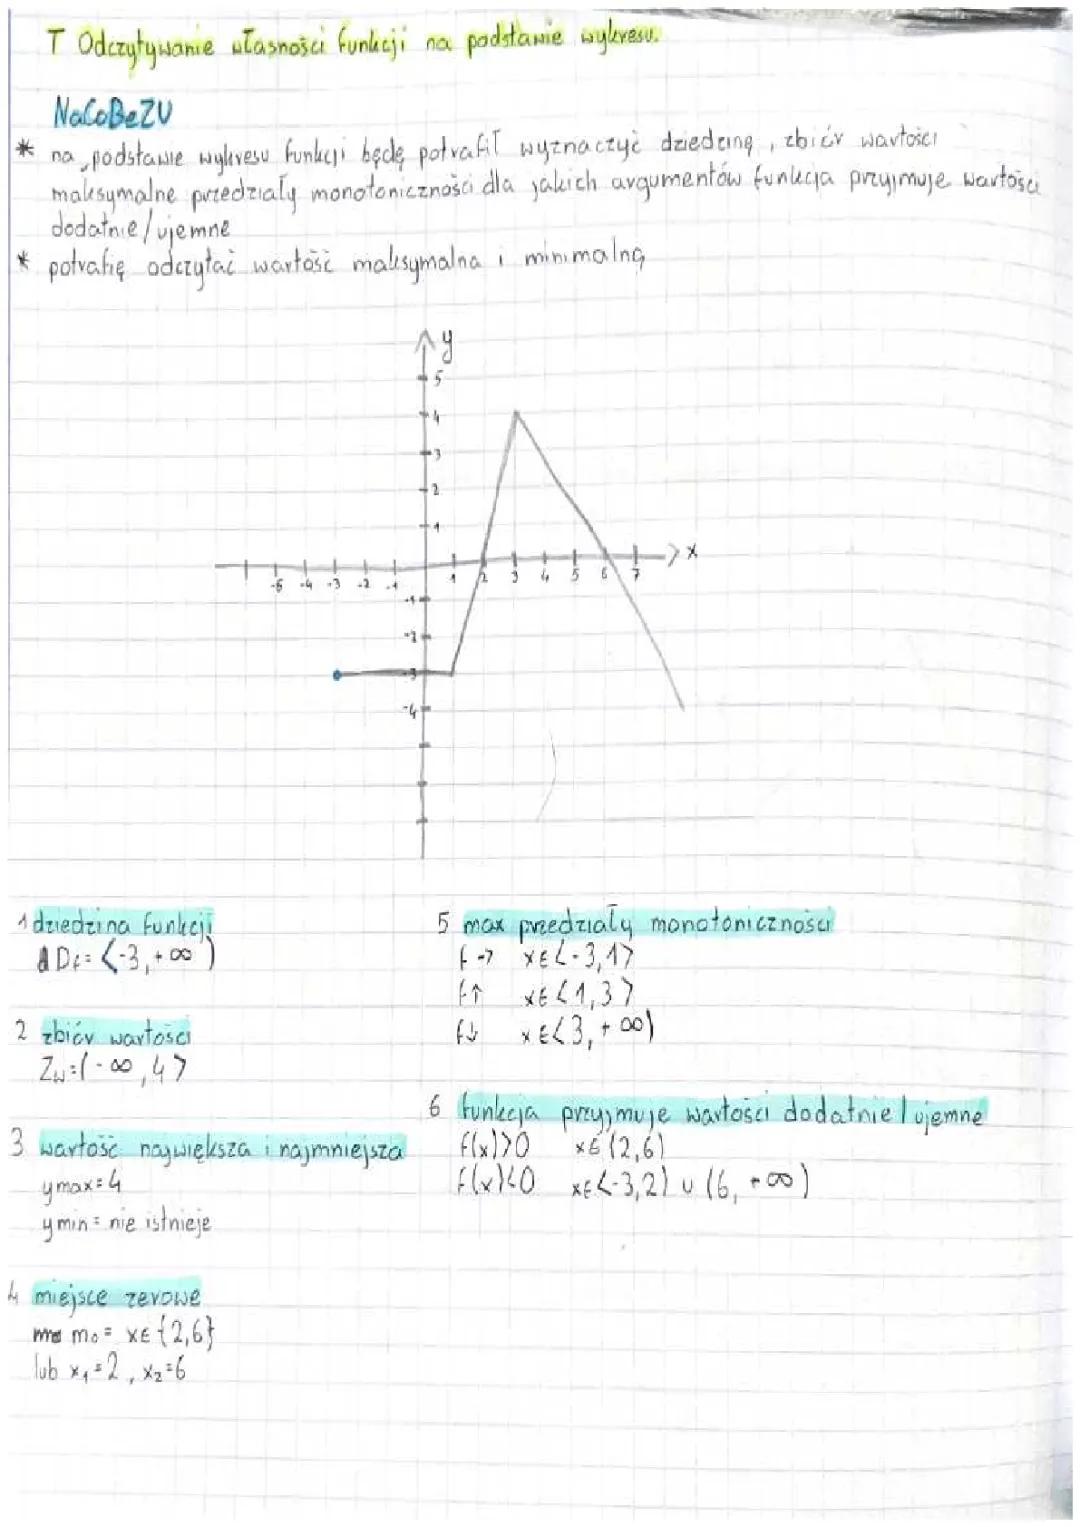 T Odczytywanie własności funkcji na podstawie wykresu.
NaCoBeZU
* na podstawie wykresu funkcji będę potrafił wyznaczyć dziedzinę, zbiór wartości
maksymalne przedziały monotoniczności dla jakich argumentów funkcja przyjmuje wartości
dodatnie/ujemne
* potrafię odczytać wartość maksymalna i minimalną
y
5
4
3
2
1
x
-5 -4 -3 -2 -1 1 2 3 4 5 6 7
-1
-2
-3
-4
1 dziedzina funkcji
Df= <-3,+∞)
2 zbiór wartości
Zw=(-∞,4>
3 wartość największa i najmniejsza
ymax=4
ymin= nie istnieje
4 miejsce zerowe
m0= x∈{2,6}
lub x₁=2, x₂=6
5 max przedziały monotoniczności
f→ x∈<-3,1>
f↑ x∈<1,3>
f↓ x∈<3,+∞)
6 funkcja przyjmuje wartości dodatnie/ujemne
f(x)>0 x∈(2,6)
f(x)<0 x∈<-3,2) ∪ (6,+∞)